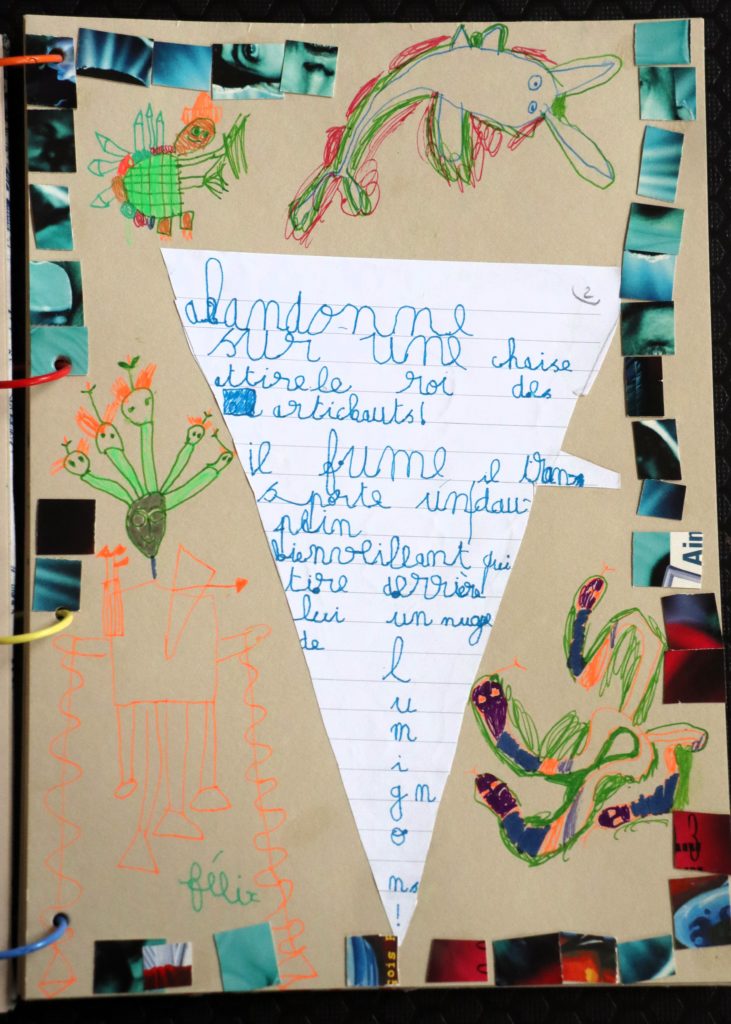 2
abandonne
sur une chaise
attire le roi des
artichauts!
il fume, il tran
sporte un dau-
phin
bienveillant qui
tire derrière
lui un nuage
de
l
u
m
i
gn
o
ns
!
félix
Ain
çois